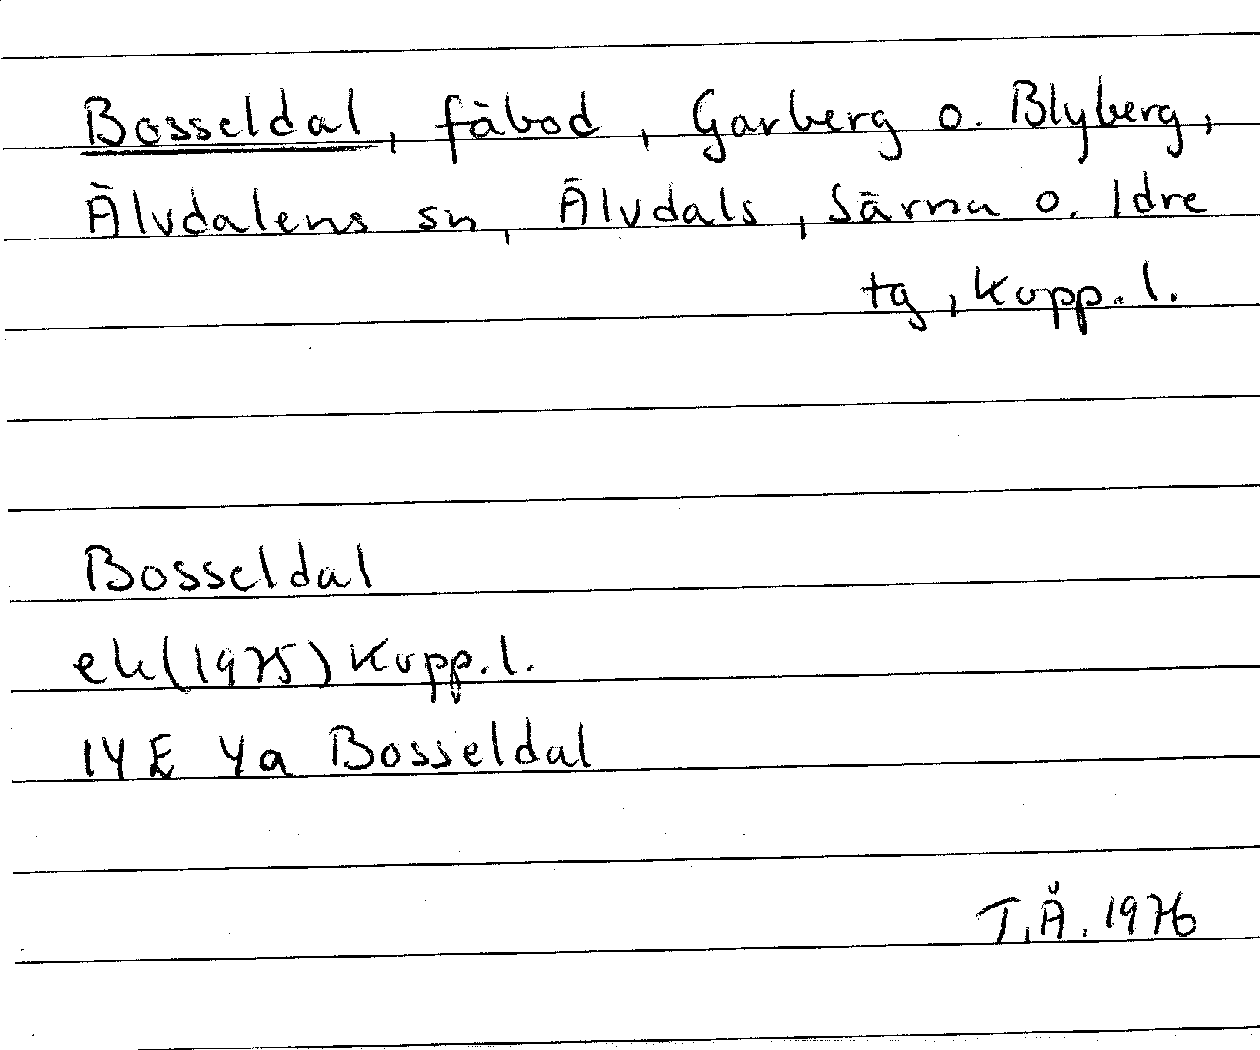 Bosseldal, fäbod, Garberg o. Blyberg,
Älvdalens sn, Älvdals, Särna o. Idre
tg, Kopp. l.
Bosseldal
ek (1975) Kopp. l.
14 E 4a Bosseldal
T.Å. 1976